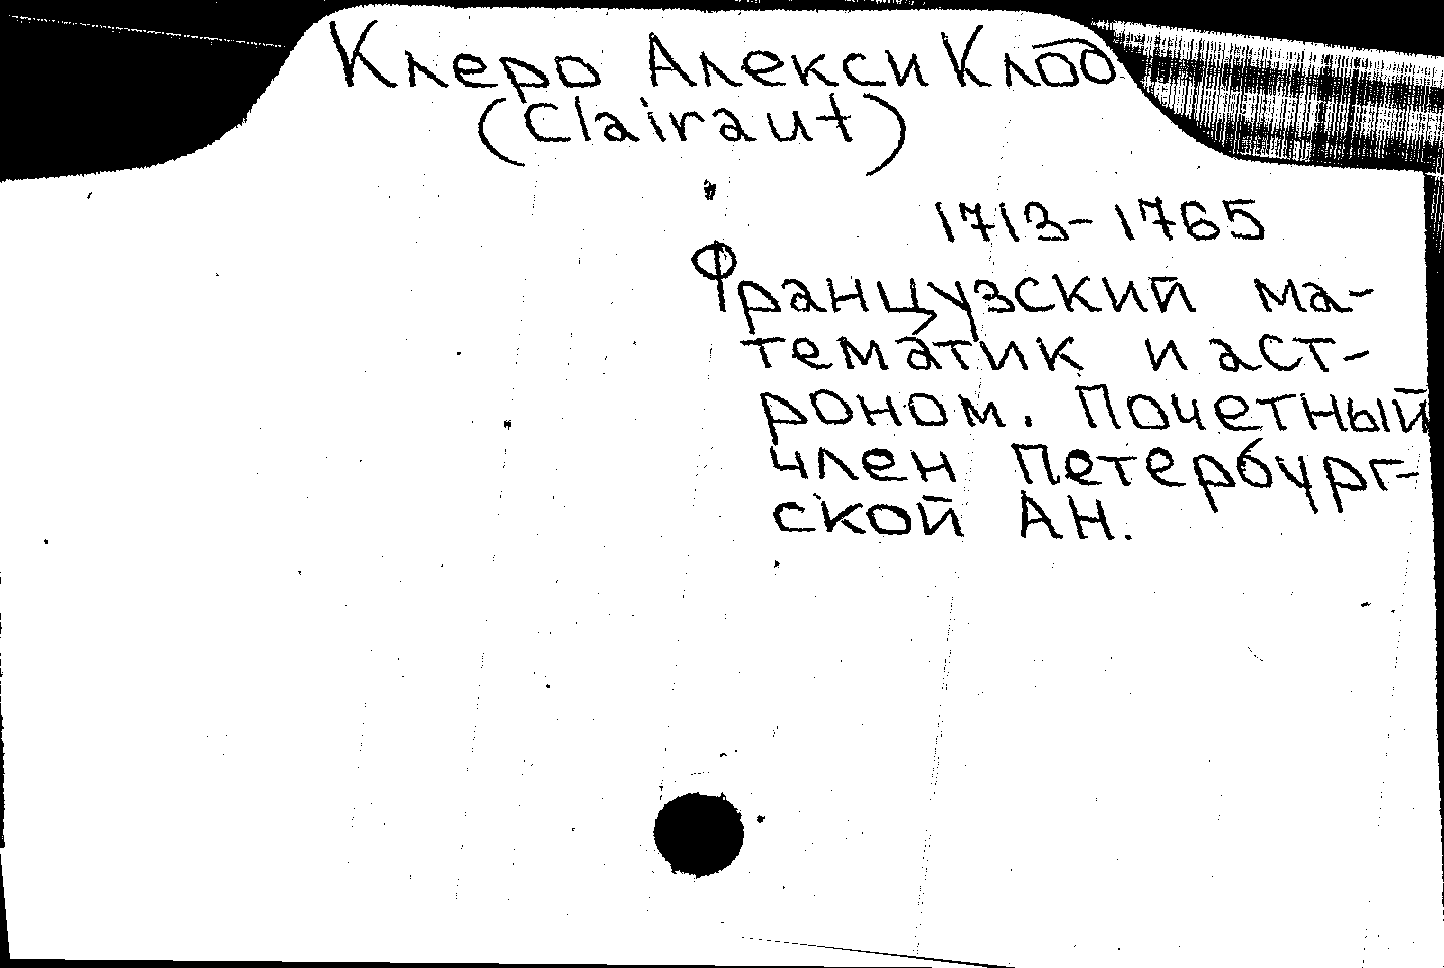 Клеро Алекси Клод
(Clairaut)
1713-1765
Французский ма-
тематик и аст-
роном. Почетный
член Петербург-
ской АН.